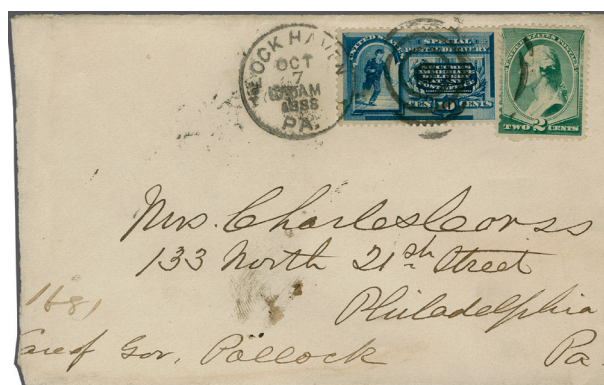 LOCK HAVEN
OCT
7
AM
1888
PA.
UNITED STATES
SPECIAL
POSTAL DELIVERY
SECURES
IMMEDIATE
DELIVERY
AT ANY
POST OFFICE
TEN 10 CENTS
UNITED STATES POSTAGE
TWO 2 CENTS
Mrs. Charles Corss
133 North 21st Street
Philadelphia
1681
Care of Gov. Pollock Pa